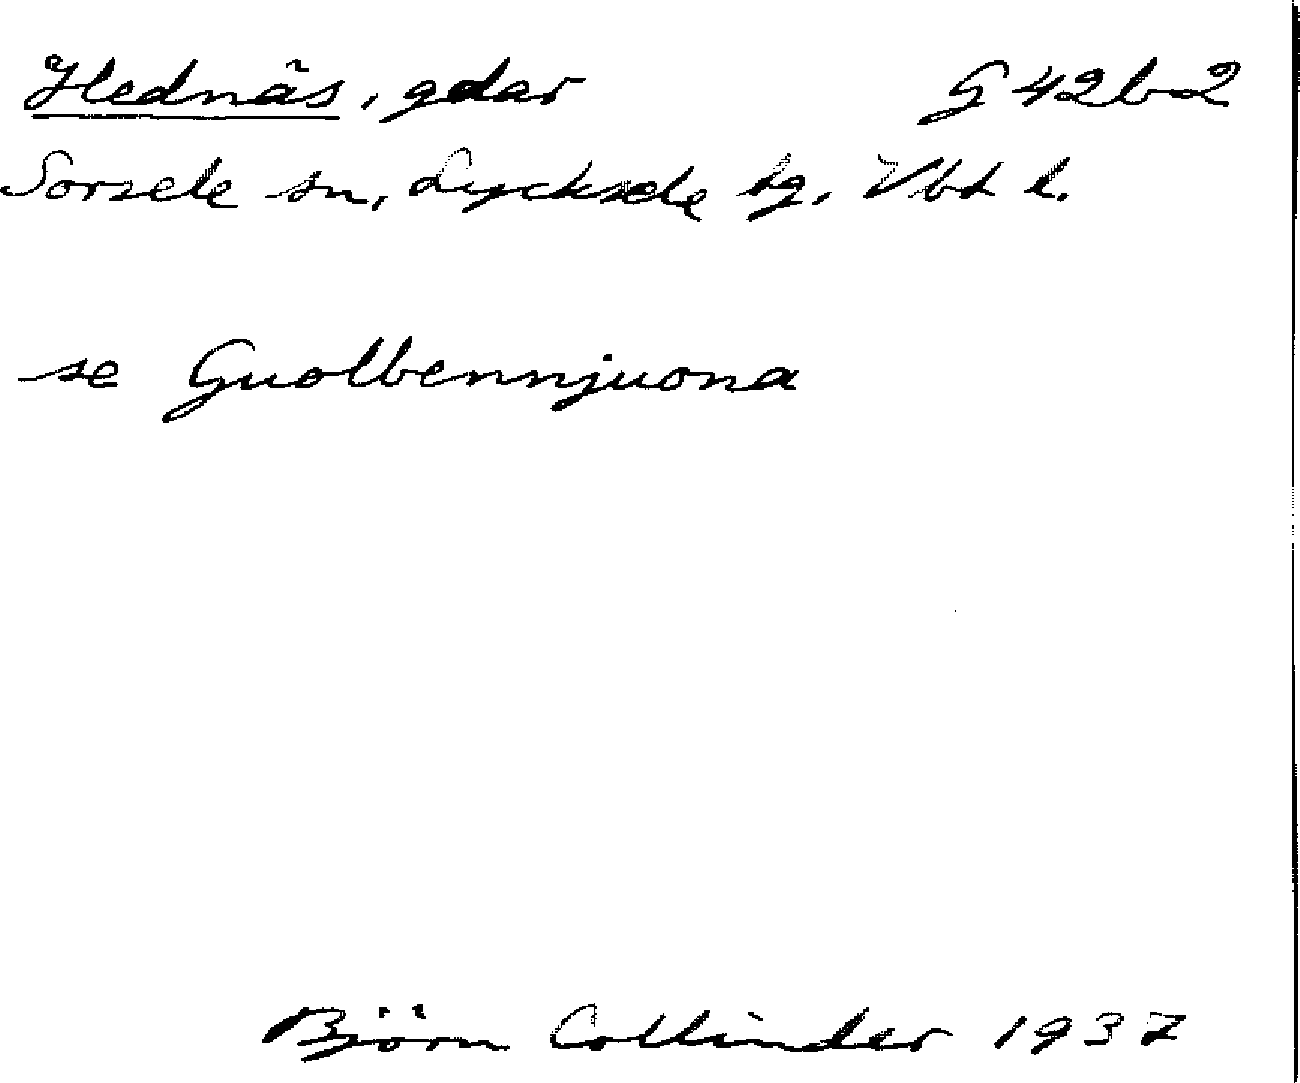 Hednäs, gdar G 42b2
Sorsele sn, Lycksele tg, Vbt l.
se Guolbennjuona
Björn Collinder 1937